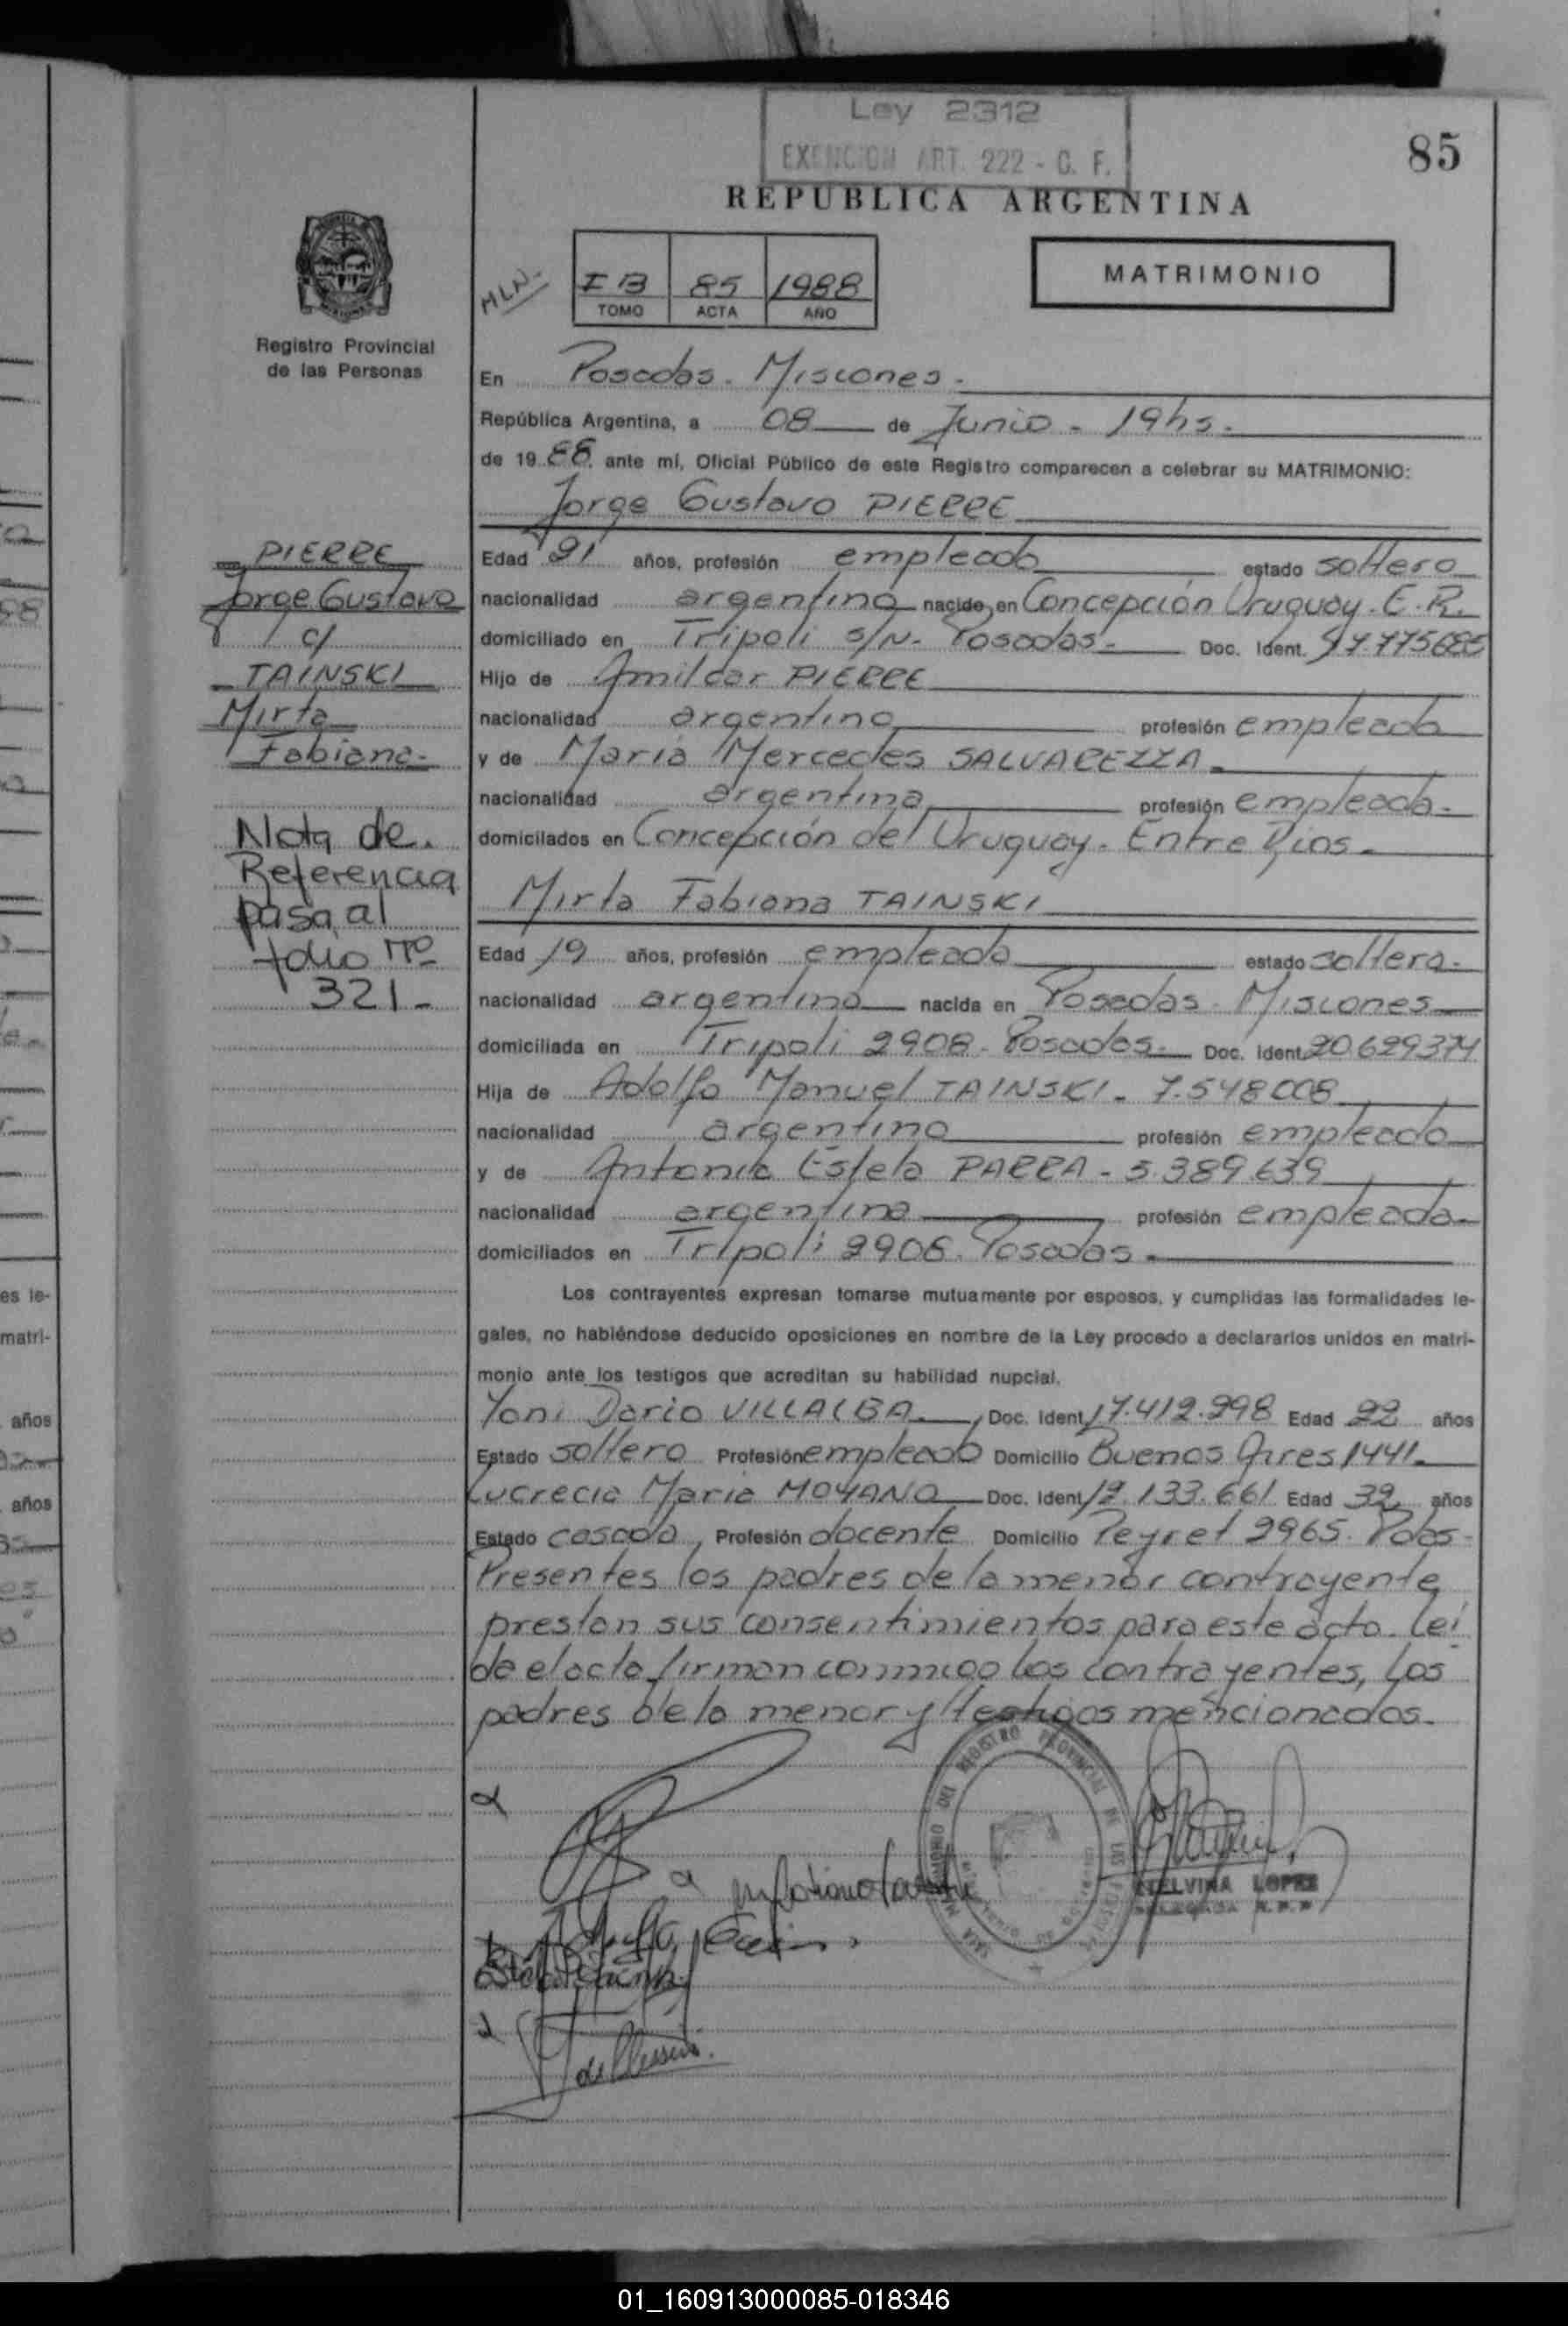 Ley 2312
EXENCION ART. 222 - C. F.
85
REPUBLICA ARGENTINA
MATRIMONIO
HLN-
I B 85 1988
TOMO ACTA AÑO
Registro Provincial
de las Personas
En Posadas - Misiones -
República Argentina, a 08 de Junio - 19hs.
de 1988 ante mí, Oficial Público de este Registro comparecen a celebrar su MATRIMONIO:
Jorge Gustavo PIERRE
PIERRE
Jorge Gustavo
c/
TAINSKI
Mirta
Fabiana-
Nota de.
Referencia
pasa al
folio Nº
321-
Edad 21 años, profesión empleado estado soltero
nacionalidad argentina nacido en Concepción Uruguay. E. R.
domiciliado en Tripoli S/N - Posadas - Doc. Ident. 17.775685
Hijo de Amilcar PIERRE
nacionalidad argentino profesión empleado
y de María Mercedes SALVAREZZA -
nacionalidad argentina profesión empleada -
domicilados en Concepción del Uruguay - Entre Ríos -
Mirta Fabiana TAINSKI
Edad 19 años, profesión empleada estado soltera -
nacionalidad argentina nacida en Posadas - Misiones
domiciliada en Tripoli 2908 - Posadas - Doc. Ident. 20.629374
Hija de Adolfo Manuel TAINSKI - 7.548008
nacionalidad argentino profesión empleado
y de Antonia Estela PARRA - 5.389.639
nacionalidad argentina profesión empleada -
domiciliados en Tripoli 2908. Posadas -
Los contrayentes expresan tomarse mutuamente por esposos, y cumplidas las formalidades le-
gales, no habiéndose deducido oposiciones en nombre de la Ley procedo a declararlos unidos en matri-
monio ante los testigos que acreditan su habilidad nupcial.
Yoni Dario VILLALBA - Doc. Ident. 17.412.298 Edad 22 años
Estado soltero Profesión empleado Domicilio Buenos Aires 1441 -
Lucrecia Maria MOYANO Doc. Ident. 12.133.661 Edad 32 años
Estado casada Profesión docente Domicilio Peyret 2965. Pdas -
Presentes los padres de la menor contrayente
prestan sus consentimientos para este acto. Leí
da el acta firman conmigo los contrayentes, los
padres de la menor y testigos mencionados -
REGISTRO PROVINCIAL DE LAS PERSONAS
ETELVINA LOPEZ
DELEGADA R.P.P
es le-
matri-
años
años
01_160913000085-018346